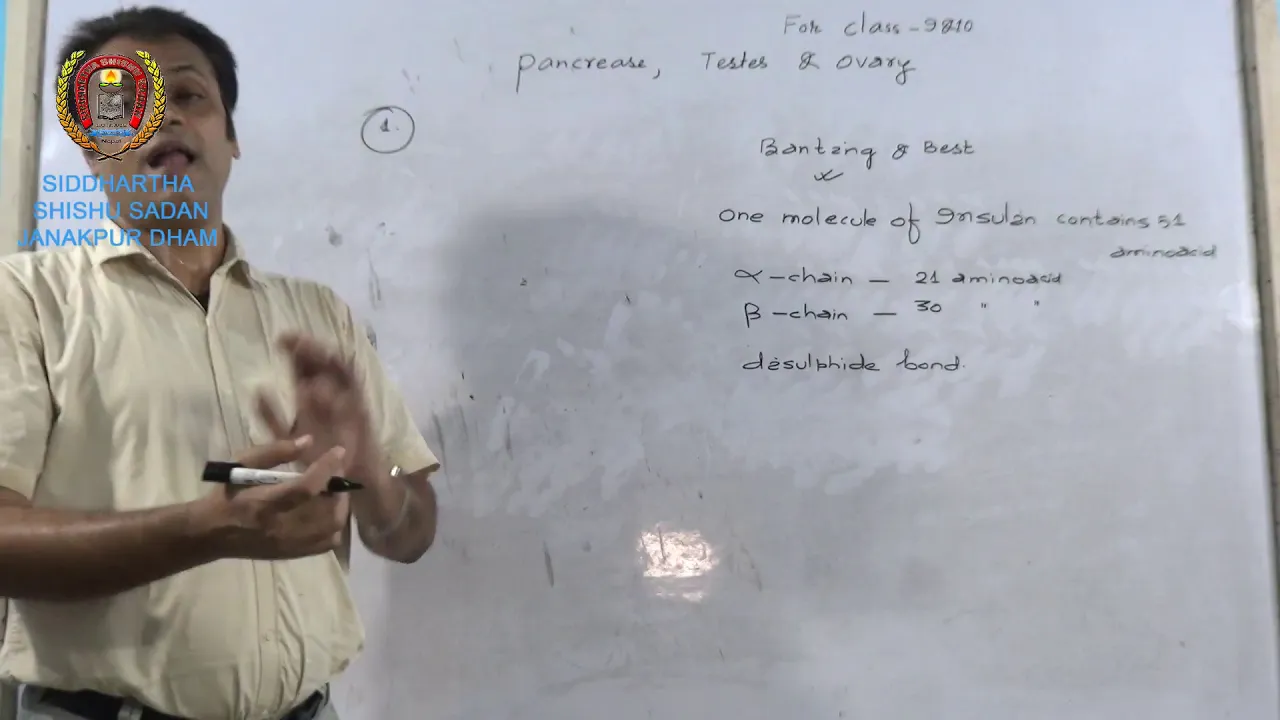 For class-9&10
pancrease, Testes & ovary
1.
Banting & Best
One molecule of Insulin contains 51
aminoacid
α-chain — 21 aminoacid
β-chain — 30 " "
disulphide bond.
SIDDHARTHA
SHISHU SADAN
JANAKPUR DHAM